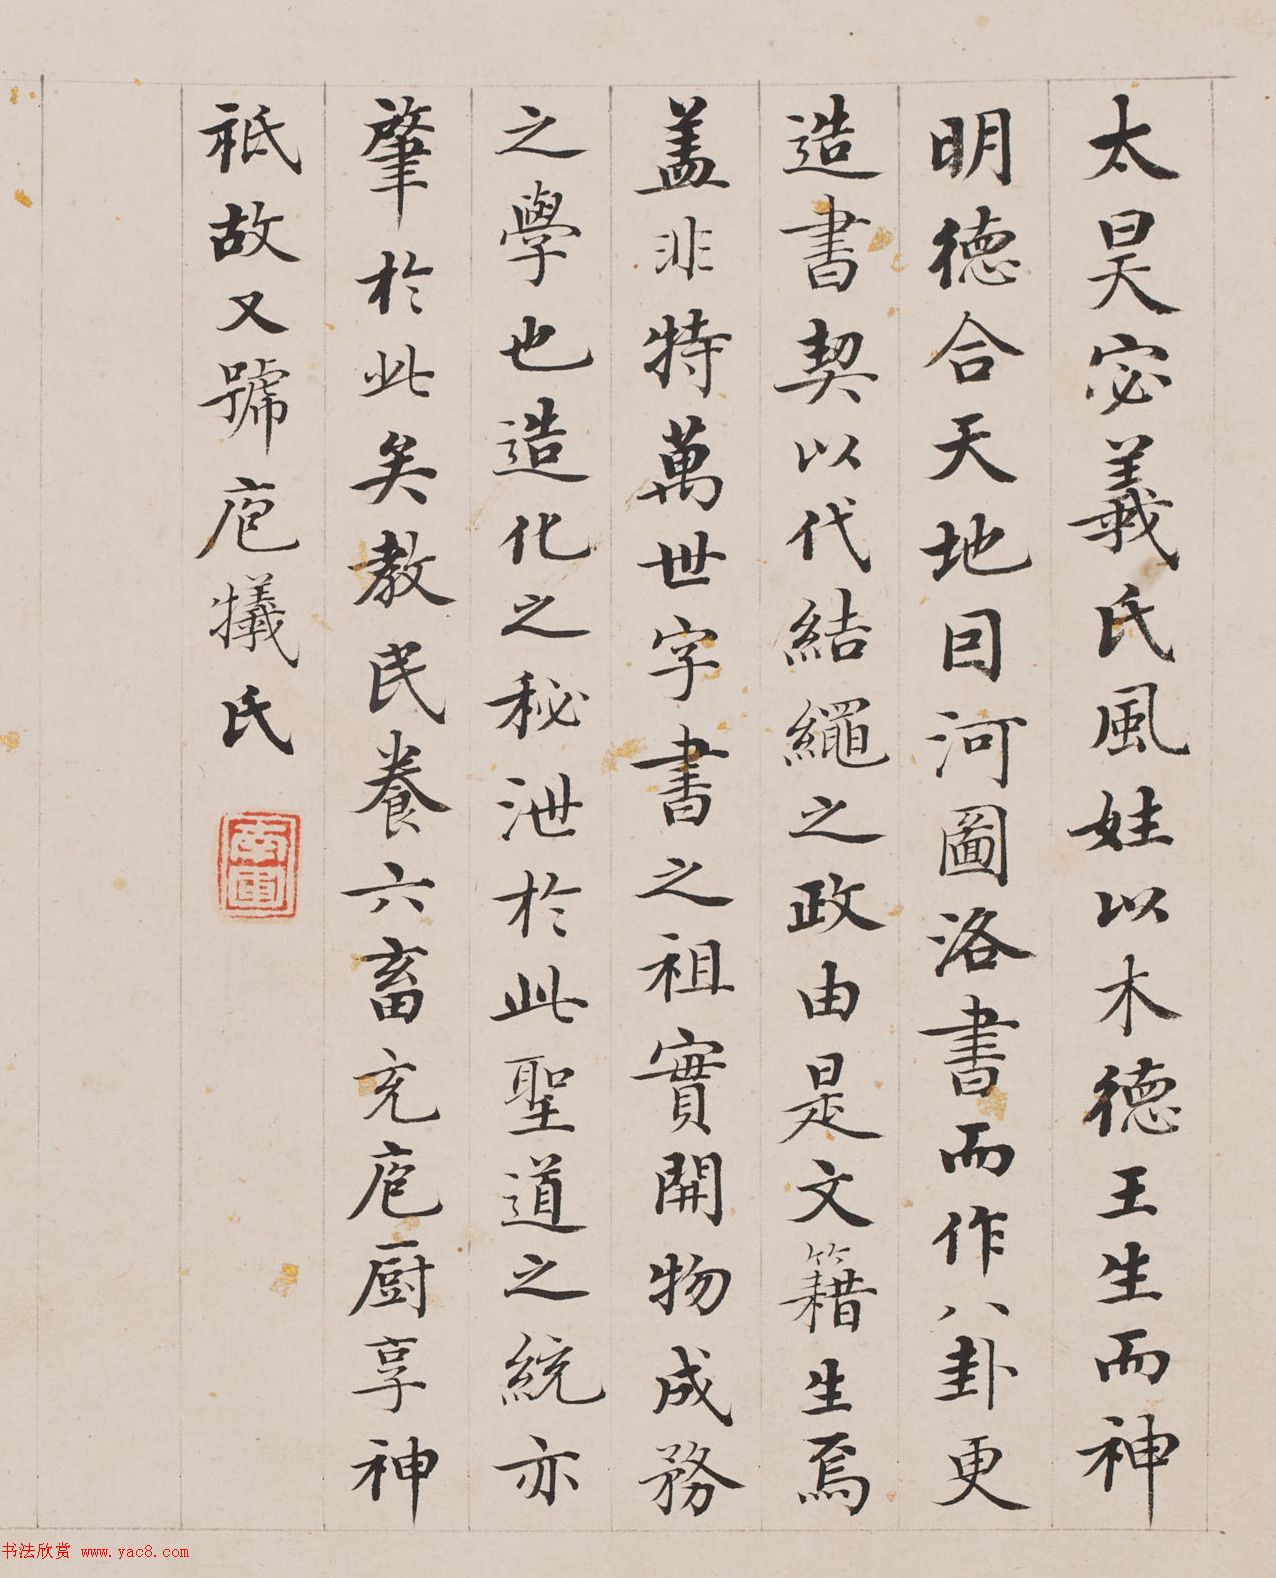 太昊宓義氏風姓以木德王生而神
明德合天地因河圖洛書而作八卦更
造書契以代結繩之政由是文籍生焉
盖非特萬世字書之祖實開物成務
之學也造化之秘泄於此聖道之統亦
肇於此矣教民養六畜充庖厨享神
祇故又號庖犠氏
书法欣赏 www.yac8.com